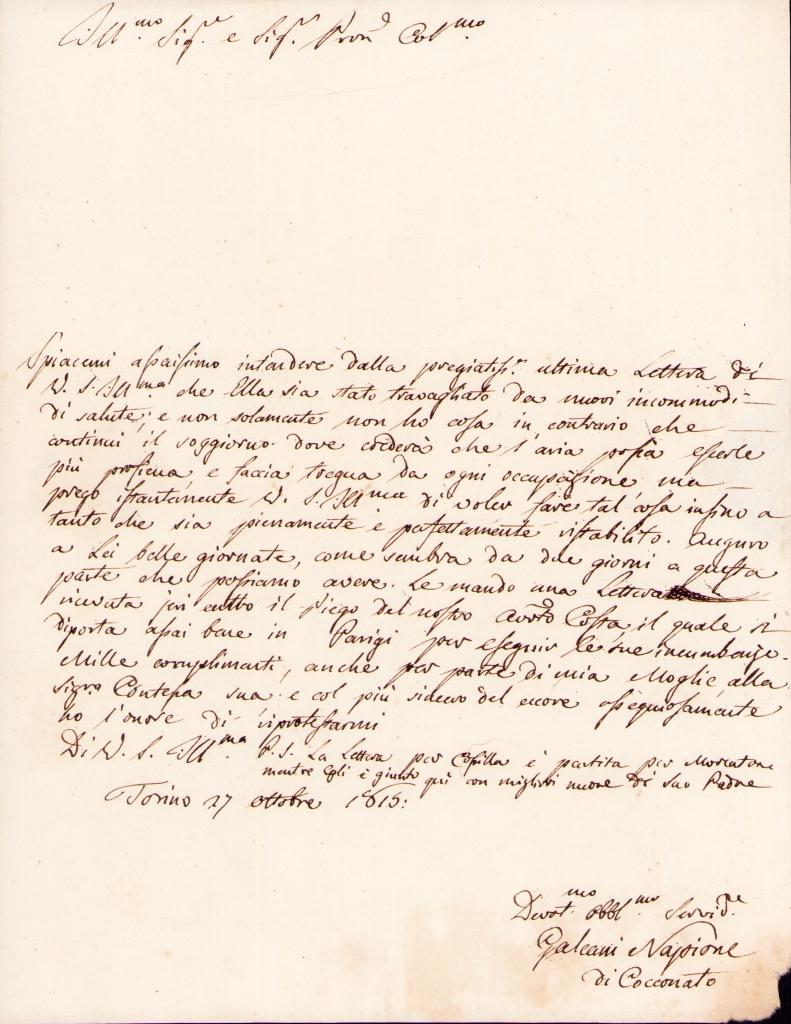 Ill.mo Sig.e e Sig.e Pron. Col.mo
Spiacemi assaissimo intendere dalla pregiatiss.a ultima Lettera di
V. S. Ill.ma che Ella sia stato travagliato da nuovi incommodi
di salute; e non solamente non ho cosa in contrario che
continui il soggiorno dove crederà che l'aria possa esserle
più proficua e faccia tregua da ogni occupazione ma
prego istantemente V. S. Ill.ma di voler fare tal cosa insino a
tanto che sia pienamente e perfettamente ristabilito. Auguro
a Lei belle giornate, come sembra da due giorni a questa
parte che possiamo avere. Le mando una Lettera
ricevuta jeri entro il Piego del nostro Costa il quale si
diporta assai bene in Parigi per eseguir le sue incumbenze.
Mille complimenti, anche per parte di mia Moglie alla
Sig.ra Contessa sua e col più sincero del cuore ossequiosamente
ho l'onore di riprotestarmi
Di V. S. Ill.ma
P. S. La Lettera per è partita per
mentre Egli è giunto qui con migliori nuove di suo Padre
Torino 27 ottobre 1815:
Devot.mo obbl.mo Servid.e
Galeani Napione
di Cocconato